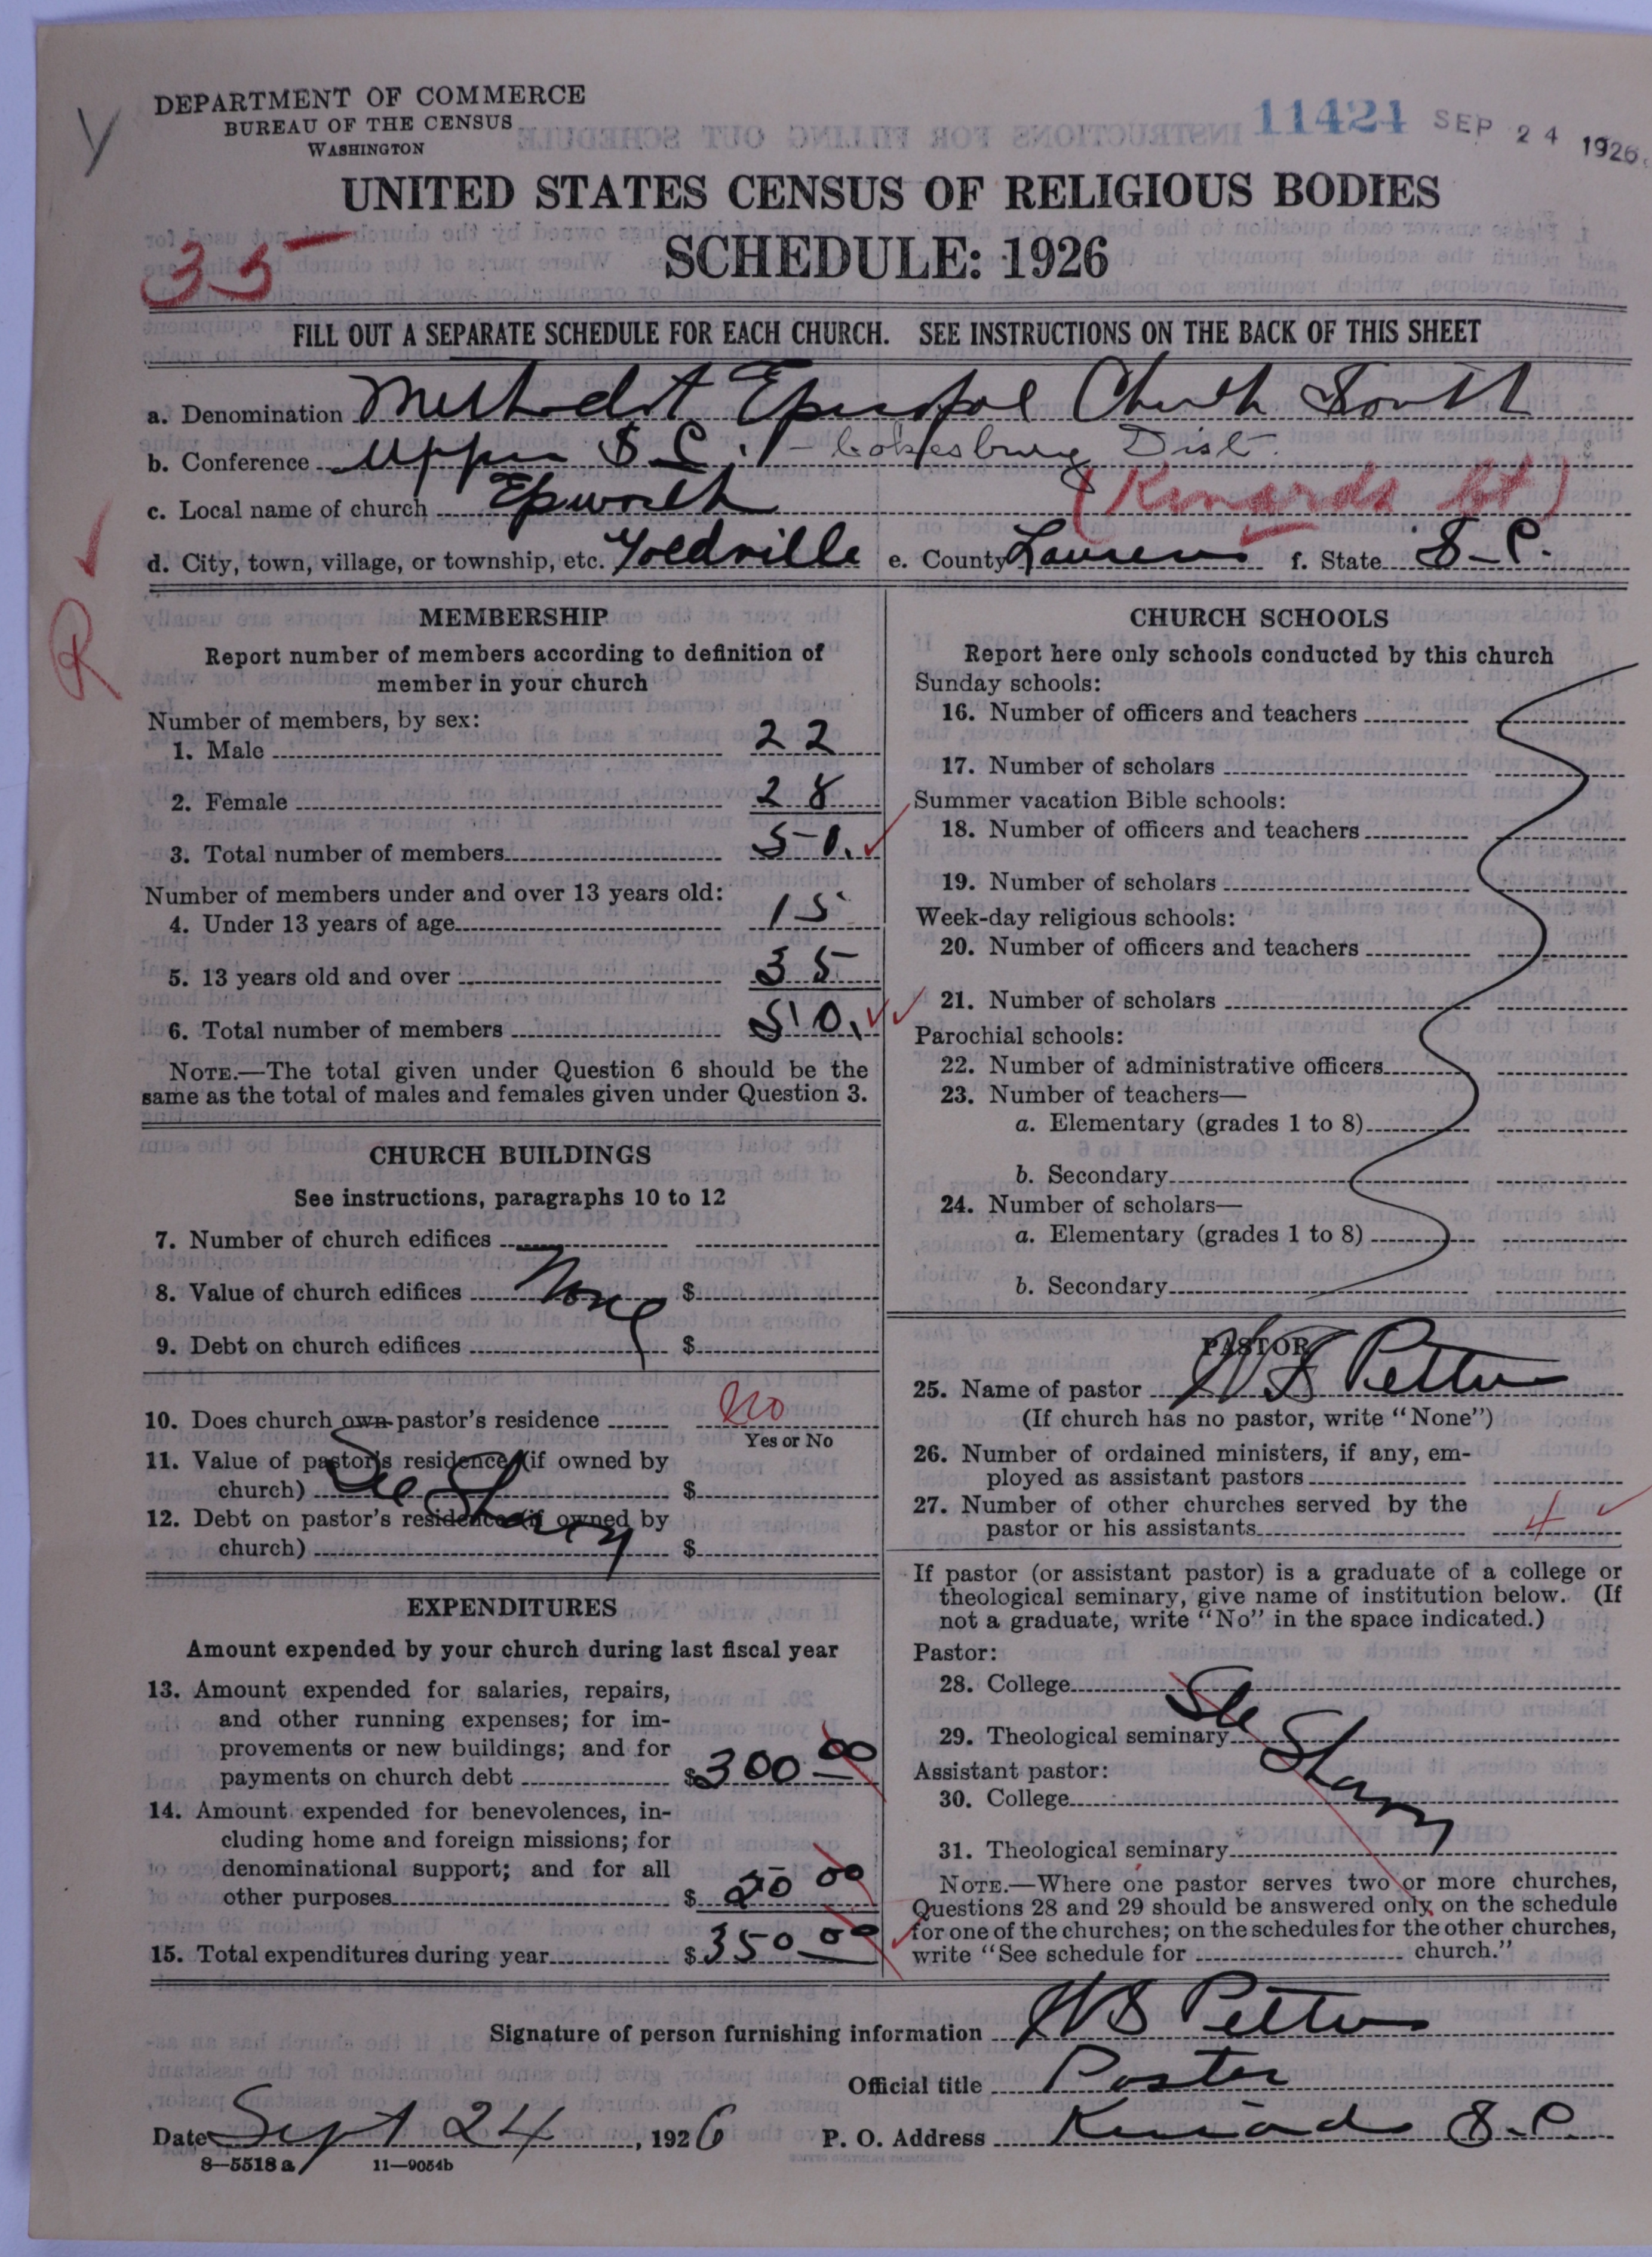 DEPARTMENT OF COMMERCE
BUREAU OF THE CENSUS
WASHINGTON
11421 SEP 24 1926
UNITED STATES CENSUS OF RELIGIOUS BODIES
SCHEDULE: 1926
35
FILL OUT A SEPARATE SCHEDULE FOR EACH CHURCH. SEE INSTRUCTIONS ON THE BACK OF THIS SHEET
a. Denomination Methodist Episcopal Church South
b. Conference Upper S.C. - Cokesbury Dist.
c. Local name of church Epworth (Kinards Ct)
d. City, town, village, or township, etc. Goldville e. County Laurens f. State S.C.
R
MEMBERSHIP
Report number of members according to definition of
member in your church
Number of members, by sex:
1. Male 22
2. Female 28
3. Total number of members 50.
Number of members under and over 13 years old:
4. Under 13 years of age 15
5. 13 years old and over 35
6. Total number of members 50.
NOTE.—The total given under Question 6 should be the
same as the total of males and females given under Question 3.
CHURCH BUILDINGS
See instructions, paragraphs 10 to 12
7. Number of church edifices
8. Value of church edifices None $
9. Debt on church edifices $
10. Does church own pastor's residence No
Yes or No
11. Value of pastor's residence (if owned by
church) See Sharon $
12. Debt on pastor's residence (if owned by
church) $
EXPENDITURES
Amount expended by your church during last fiscal year
13. Amount expended for salaries, repairs,
and other running expenses; for im-
provements or new buildings; and for
payments on church debt $300 00
14. Amount expended for benevolences, in-
cluding home and foreign missions; for
denominational support; and for all
other purposes $ 50 00
15. Total expenditures during year $350 00
CHURCH SCHOOLS
Report here only schools conducted by this church
Sunday schools:
16. Number of officers and teachers
17. Number of scholars
Summer vacation Bible schools:
18. Number of officers and teachers
19. Number of scholars
Week-day religious schools:
20. Number of officers and teachers
21. Number of scholars
Parochial schools:
22. Number of administrative officers
23. Number of teachers—
a. Elementary (grades 1 to 8)
b. Secondary
24. Number of scholars—
a. Elementary (grades 1 to 8)
b. Secondary
PASTOR
25. Name of pastor W S Pettus
(If church has no pastor, write "None")
26. Number of ordained ministers, if any, em-
ployed as assistant pastors
27. Number of other churches served by the
pastor or his assistants 4
If pastor (or assistant pastor) is a graduate of a college or
theological seminary, give name of institution below. (If
not a graduate, write "No" in the space indicated.)
Pastor:
28. College See
29. Theological seminary Sharon
Assistant pastor:
30. College
31. Theological seminary
NOTE.—Where one pastor serves two or more churches,
Questions 28 and 29 should be answered only on the schedule
for one of the churches; on the schedules for the other churches,
write "See schedule for church."
Signature of person furnishing information W S Pettus
Official title Pastor
Date Sept 24, 1926 P. O. Address Kinards S.C.
8—5518 a 11—9054b